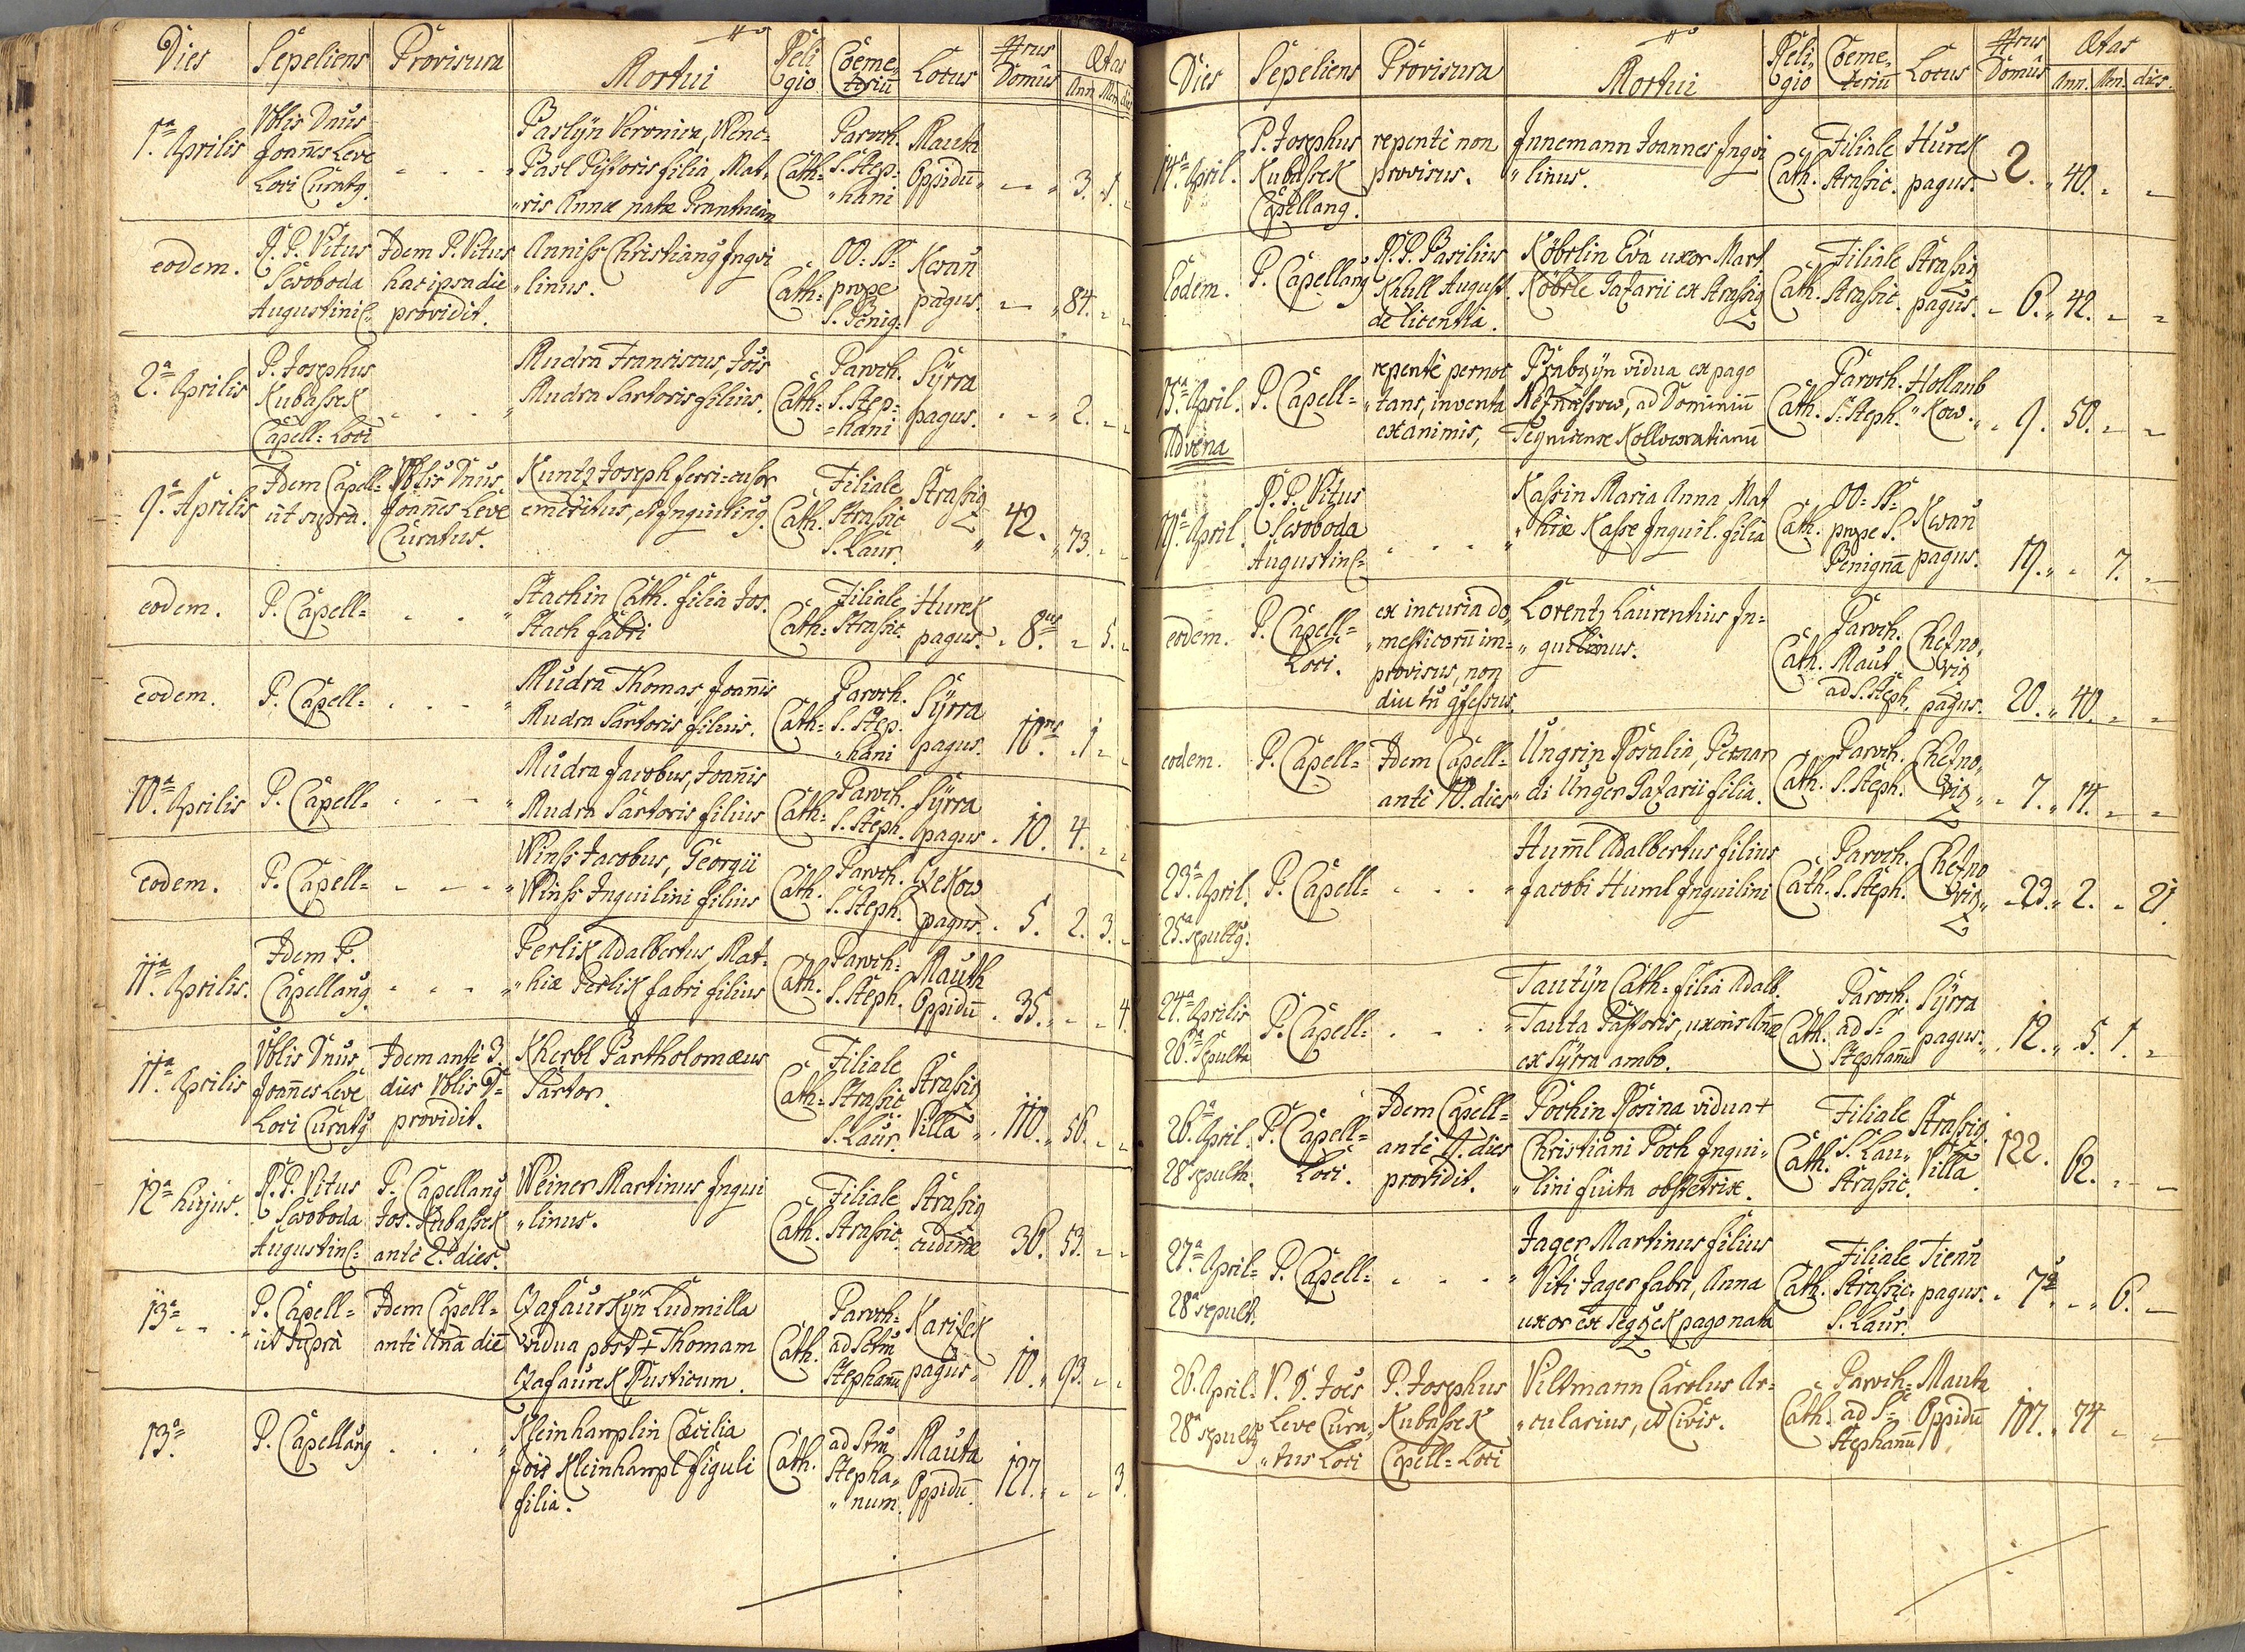 Dies Sepeliens Provisura Mortui Religio Coemeteriũ Locus Nrus Domûs Ætas
Ann. Mn. dies
1.ª Aprilis Vblis Dnus Joañes Leve Loci Curatg. - - - Paslÿn Veronica, Wenc=
Pasl Pistoris filia, Mat,,
,,ris Annæ natæ Cath= Paroch. S. Step= hani Mauta Oppidũ - 3. 1. -
eodem. R. P. Vitus Swoboda Augustin: Idem P. Vitus hac ipsa die providit. Anniss Christiang Inqvi
,,linus. Cath= OO: SS= prope S. Benig: Kwaň pagus. - 84. - -
2.ª Aprilis P. Josephus Kubassek Capell= Loci - - - Mudra Franciscus, Jois
Mudra Sartoris filius. Cath= Paroch. S. Step= =hani Sÿrra pagus. - 2. - -
9.ª Aprilis Idem Capell= ut supra. Vblis Dnus Joañes Leve Curatus. Kuntz Joseph ferri=cusor
emeritus, et Inquiling. Cath. Filiale Strassic S. Laur. Strassiz 42. 73. - -
eodem. P. Capell= - - Stachin Cath. filia Jos.
Stach fabri Cath= Filiale Strassic. Hurek pagus. 8us - 5. -
eodem. P. Capell= - - - Mudra Thomas, Joañis
Mudra Sartoris filius. Cath= Paroch. S. Step. ,,hani Sÿrra pagus. 10us 1 - -
10.ª Aprilis P. Capell= - - - Mudra Jacobus, Joañis
Mudra Sartoris filius Cath= Paroch. S. Steph. Sÿrra pagus. 10. 4. - -
eodem. P. Capell= - - - Winss Jacobus, Georgii
Winss Inquilini filius Cath. Paroch. S. Steph. pagus. 5. 2. 3. -
11.ª Aprilis. Idem P. Capellang. - - - Perlik Adalbertus, Mat=
,,hiæ Perlik fabri filius Cath. Paroch= S. Steph. Mauth Oppidũ 35. - - 4.
11.ª Aprilis Vblis Dnus Joañes Leve Loci Curatg Idem antè 3. dies Vblis D= providit. Kherbl Bartholomæus
Sartor. Cath= Filiale Strassic. S. Laur. Strassiz Villa 110. 56. - -
12.ª hujus. R. P. Vitus Swoboda Augustin: P. Capellang Jos. Kubassek antè 2. dies. Weiner Martinus Inqui
,,linus. Cath. Filiale Strassic. Strassiz cudinæ 36. 53. - -
13.ª - - P. Capell= ut supra Idem Capell= antè unã diẽ Czasaurkÿn Ludmilla
vidua post + Thomam
Czasaurek Rusticum. Cath. Paroch= ad Sctm Stephanũ Karizek pagus 10. 93. - -
13.ª P. Capellang - - - Kleinhamplin Cæcilia
Jois Kleinhampl figuli
filia. Cath. ad Stm Stepha,, ,,num. Mauta Oppidũ. 127. - - 3.
Dies Sepeliens Provisura Mortui Religio Coemeteriũ Locus Nrus Domûs Ætas
Ann. Mn. dies.
14.ª April. P. Josephus Kubassek Capellang. repentè non provisus. Innemann Joannes Inqvi
,,linus. Cath. Filiale Strassic. Hurek pagus. 2. 40. - -
Eodem. P. Capellang R. P. Basilius Kaull August. de licentia. Köberlin Eva uxor Mart
Köberle Pazarii ex Strassiz Cath. Filiale Strassic. Strassiz pagus. 6. 42. - -
15.ª April. Advena P. Capell= repentè pernoc ,,tans, inventa exanimis, Brabczÿn vidua ex pago
Neznassow, ad Dominiũ
Kollowratianũ Cath. Paroch. S. Steph. Hollaub ,,kow. 9. 50. - -
17.ª April. R. P. Vitus Swoboda Augustin: - - - Kassin Maria Anna Mat
,,hiæ Kasse Inquil. filia Cath. OO: SS= prope S. Benignã Kwaň pagus. 19. - 7. -
eodem. P. Capell= Loci. ex incuria do, ,,mesticorũ im= provisus, non diu tñ gfessus. Lorentz Laurentius In=
,,quilinus. Cath. Paroch. Maut ad S. Steph. Cheznoviz pagus. 20. 40. - -
eodem. P. Capell= Idem Capell= antè 10. dies Ungrin Rosalia, Bernar
,,di Unger Pazarii filia. Cath. Paroch. S. Steph. Cheznoviz 7. 14. - -
23.ª April. 25.ª sepultg. P. Capell= - - - Hum̃l Adalbertus filius
Jacobi Huml Inquilini Cath. Paroch. S. Steph. Cheznoviz 23. 2. - 21.
24.ª Aprilis 26.ª Sepulta P. Capell= - - - Tautÿn Cath= filia Adalb.
Tauta Pastoris, uxoris Annæ
ex Sÿrra ambo. Cath. Paroch. ad S= Stephanũ Sÿrra pagus. 12. 5. 1. -
26.ª April. 28ª sepulta. P. Capell= Loci. Idem Capell= antè 4. dies providit. Pochin Rosina vidua +
Christiani Poch Inqui,,
,,lini fuita obstetrix. Cath. Filiale S. Lau,, Strassic. Strassiz Villa. 122. 62. - -
27.ª April= 28ª sepult. P. Capell= - - - Jager Martinus filius
Viti Jager fabri, Anna
uxor ex pago nata Cath. Filiale Strassic. S. Laur. Tieny pagus. 7. - 6. -
26. April= 28ª sepultg V. D. Joes Leve Cura, ,,tus Loci P. Josephus Kubassek Capell= Loci Viltmann Carolus Ar=
,,cularius, et Civis. Cath. Paroch= ad S= Stephanũ Mauta Oppidũ 107. 74 - -